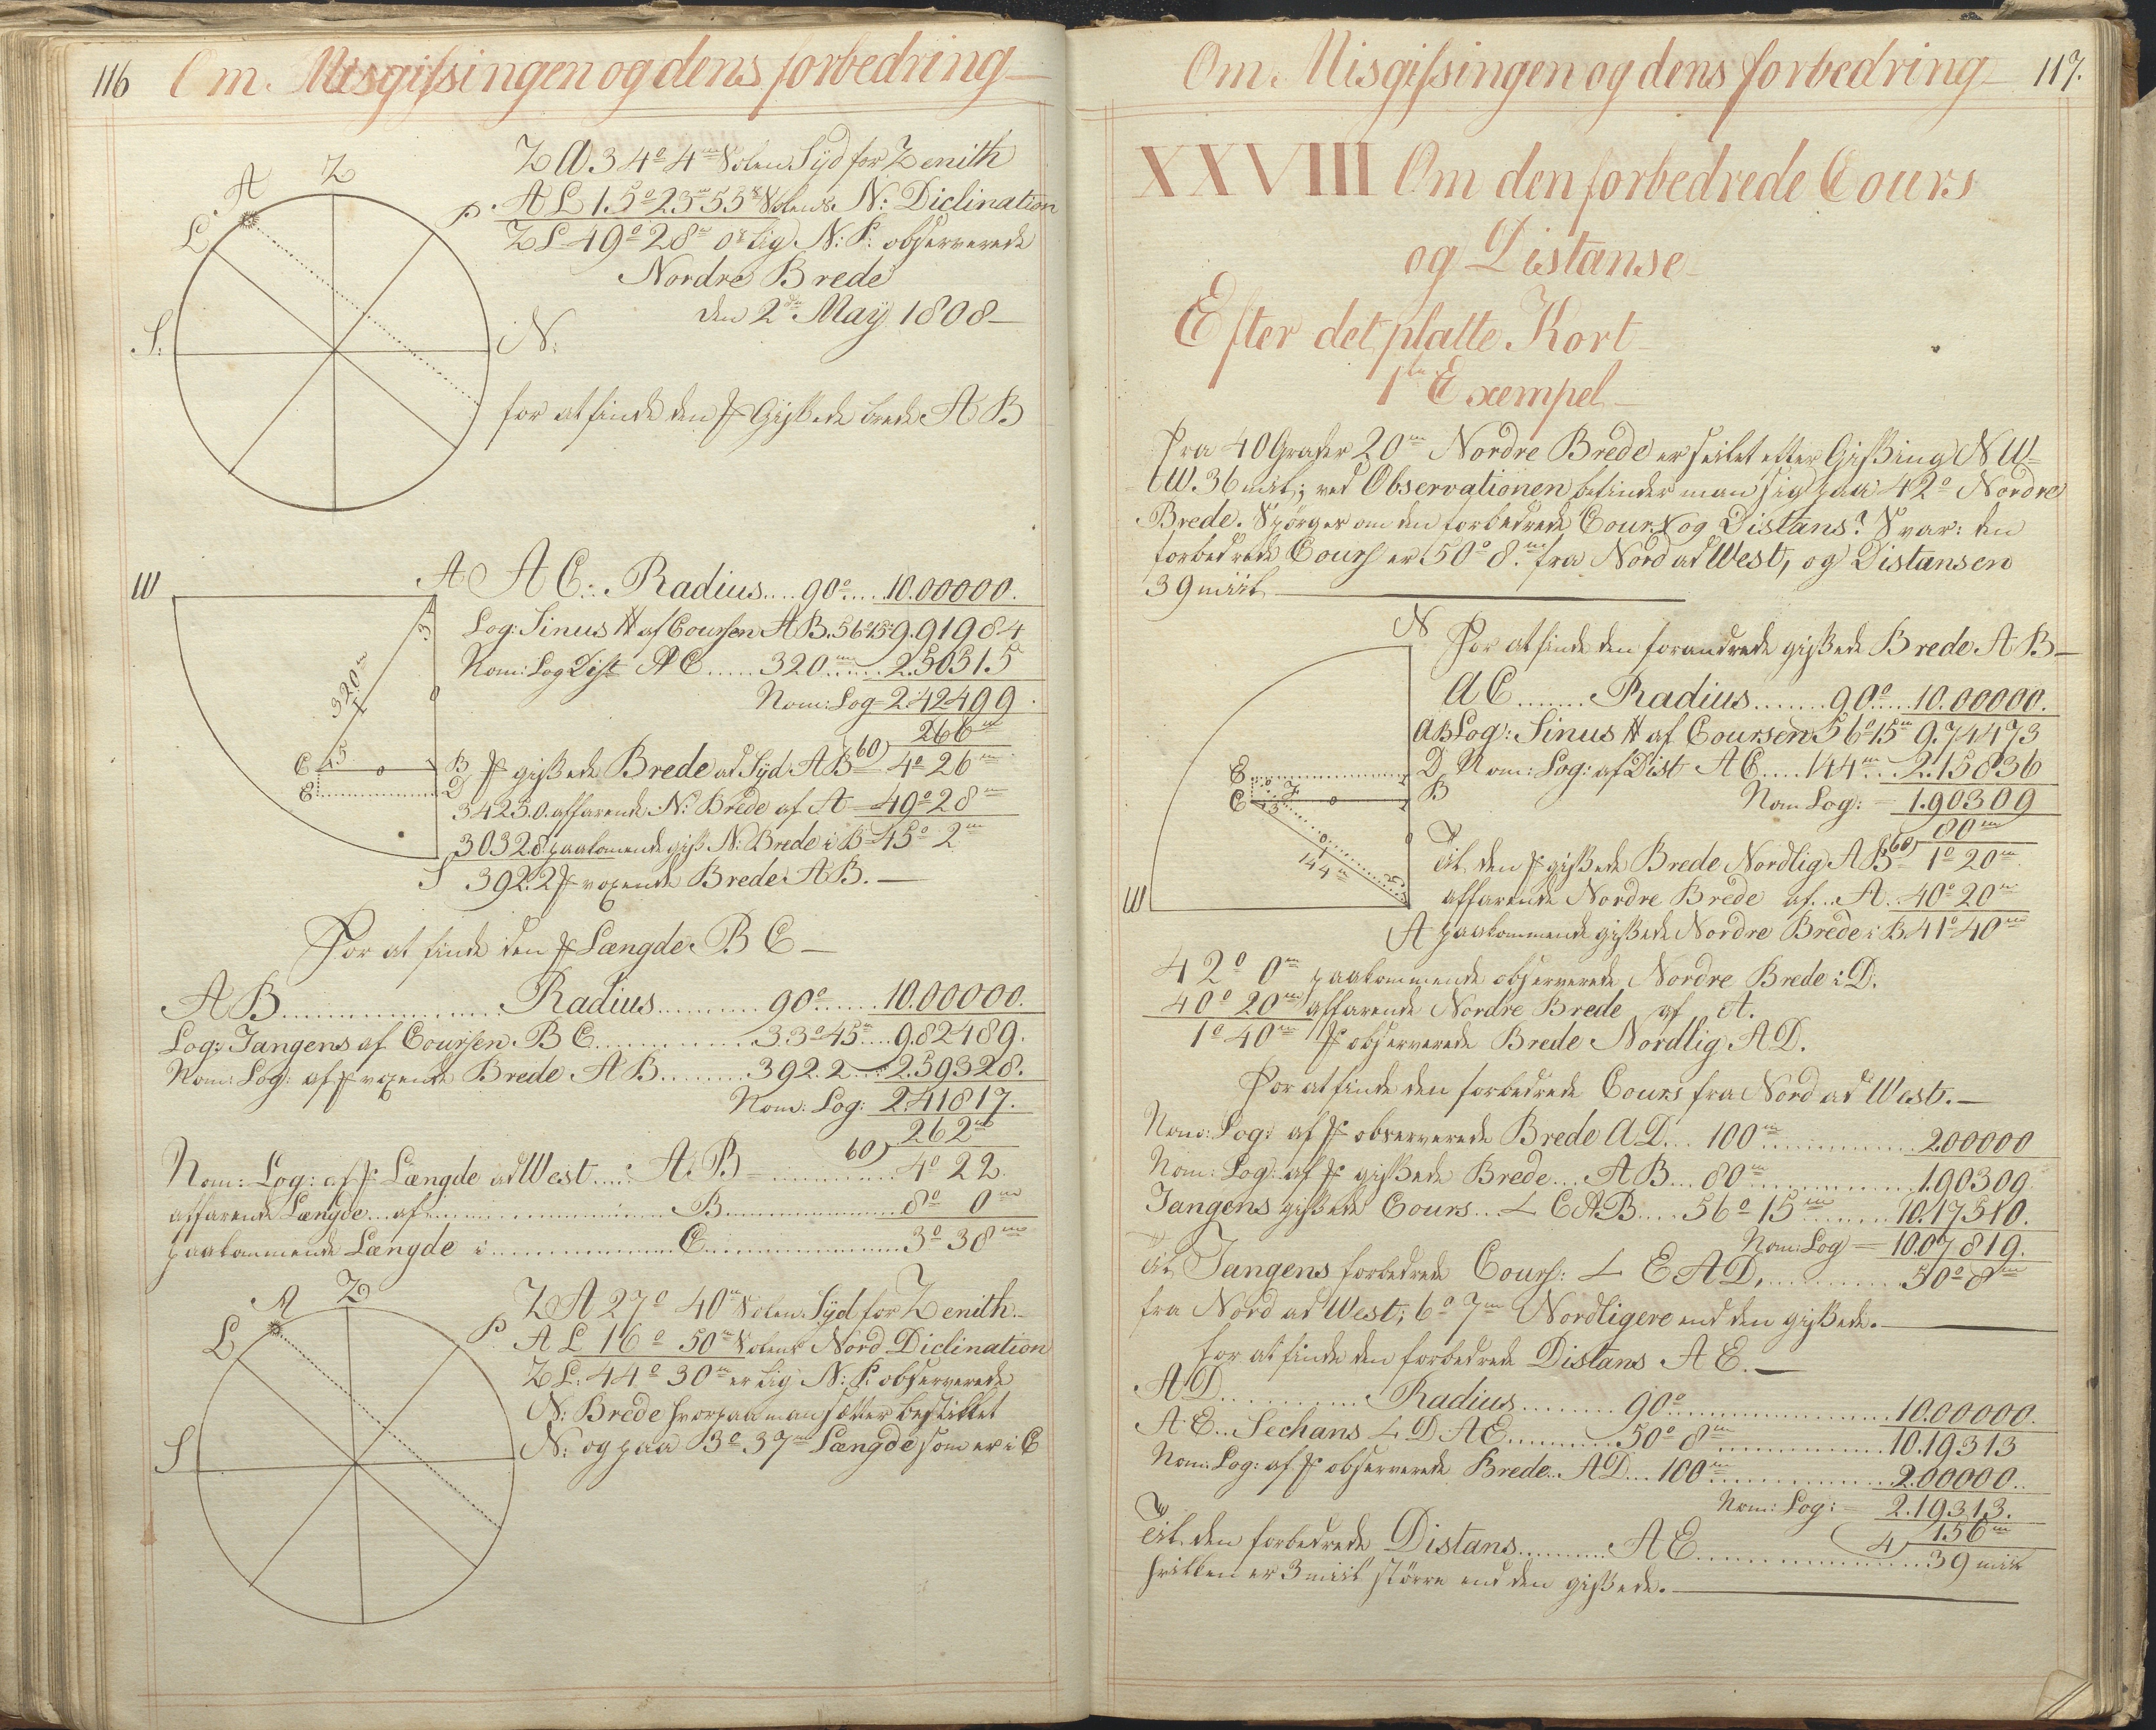 116 Om Misgissingen og dens forbedring
Z A 34° 4m Solen Syd for Zenith
A L 15° 23m 55s Solens N: Diclination
Z L 49° 28m 0s lig N: P: observerede
Nordre Brede
den 2de May 1808
Z
A
L
P.
S.
N:
for at finde den Gissede brede A B
W
A
A C: Radius.... 90°.... 10.00000.
Log: Sinus af Coursen A B. 56°15m 9.91984
Nom: Log Dist A C ..... 320m ..... 2.50515
Nom: Log = 2.42499
266m
gissede Brede ad Syd A B 60) = 4° 26m
3425.0. affarende N: Brede af A = 49° 28m
3032.8 paakomende giss N: Brede i B = 45° 2m
392.2 voxende Brede A B.
320m
C
B
E
D
S
For at finde den Længde B C
A B ........ Radius ........ 90° ...... 10.00000.
Log: Tangens af Coursen B C ........ 33° 45m .... 9.82489.
Nom: Log: af voxende Brede A B ........ 392.2 ... 2.59328.
Nom: Log: 2.41817.
262m
Nom: Log: af Længde ad West ..... A B = 60) ........ 4° 22
affarende Længde ... af ........ B ........ 8° 0m
paakommende Længde i ........ C ........ 3° 38m
Z
A
L
P.
S
Z A 27° 40m Solen Syd for Zenith
A L 16° 50m Solens Nord Diclination
Z L: 44° 30m er lig N: P: observerede
N: Brede hvorpaa man sætter bestikket
N: og paa 3° 37m Længde som er i C
Om Misgissingen og dens forbedring 117.
XXVIII Om den forbedrede Cours
og Distanse
Efter det platte Kort
1te Exempel
Fra 40 Grader 20m Nordre Brede er seilet efter Gissing NW
t W. 36 miil; ved Observationen befinder man sig paa 42° Nordre
Brede. Spörges om den forbedrede Cours og Distans? Svar: den
forbedrede Cours er 50° 8m fra Nord ad West, og Distansen
39 miil
N
For at finde den forandrede gissede Brede A B
A C ....... Radius ....... 90° ..... 10.00000.
A B Log: Sinus af Coursen 56° 15m 9.74473
Nom: Log: af Dist A C .... 144m ... 2.15836
Nom Log: = 1.90309
80m
til den gissede Brede Nordlig A B 60) = 1° 20m
affarende Nordre Brede af ... A .. 40° 20m
paakommende gissede Nordre Brede i B 41° 40m
E
D
C
B
144m
W
A
42° 0m paakommende observerede Nordre Brede i D.
40° 20m affarende Nordre Brede af A.
1° 40m observerede Brede Nordlig A D.
For at finde den forbedrede Cours fra Nord ad West.
Nom: Log: af observerede Brede A D ... 100m ........ 2.00000
Nom: Log: af gissede Brede ... A B ... 80m ........ 1.90309.
Tangens gissede Cours ... ∠ C A B .... 56° 15m ........ 10.17510.
Nom: Log = 10.07819.
til Tangens forbedrede Cours: ∠ E A D, ........ 50° 8m
fra Nord ad West; 6° 7m Nordligere end den gissede.
for at finde den forbedrede Distans A E.
A D ........ Radius ........ 90° ........ 10.00000.
A E .. Sechans ∠ D A E ........ 50° 8m ........ 10.19313
Nom: Log: af observerede Brede .. A D ... 100m ........ 2.00000.
Nom: Log: = 2.19313.
4) 156m
til den forbedrede Distans ........ A E ........ 39 miil
hvilken er 3 miil större end den gissede.